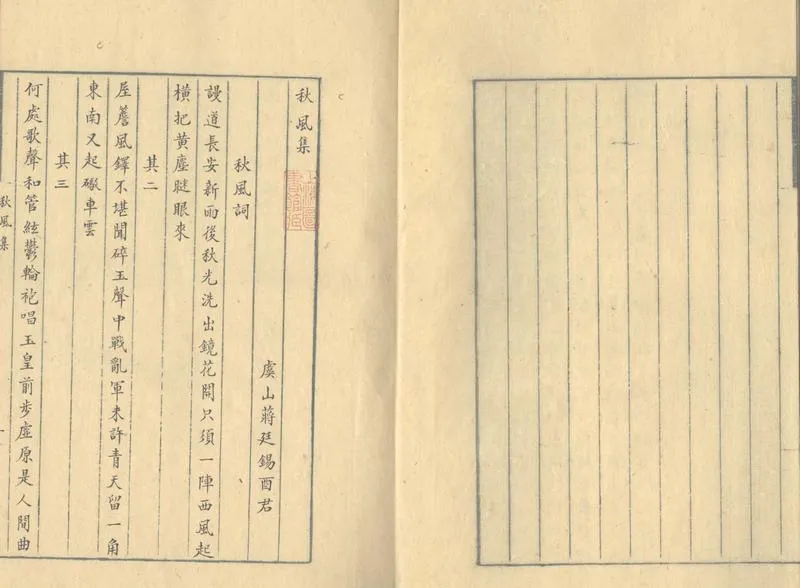 秋風集
虞山蔣廷錫酉君
秋風詞
謾道長安新雨後秋光洗出鏡花開只須一陣西風起
橫把黃塵瞇眼來
其二
屋簷風鐸不堪聞碎玉聲中戰亂軍未許青天留一角
東南又起礮車雲
其三
何處歌聲和管絃鬱輪袍唱玉皇前步虛原是人間曲
秋風集
一